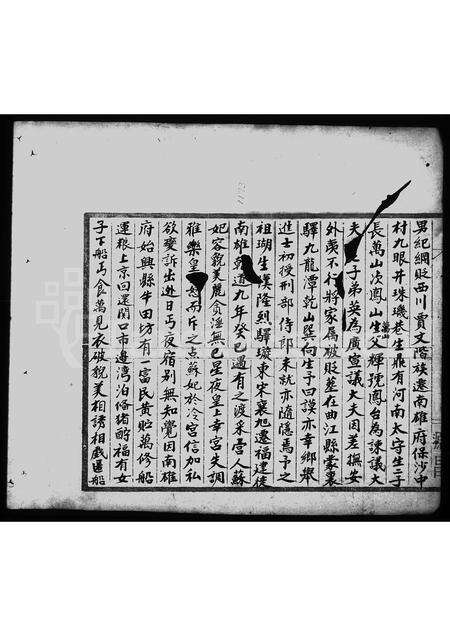 男紀綱貶西川賈文階族遷南雄府保沙中
村九眼井珠璣巷生鼎有河南太守生子
長萬山次鳳山生父輝號鳳台為諫議大
夫 子弟英為廣宣議大夫因差撫安
外夷不行將家属破貶葬在曲江縣蒙裏
驛九龍潭乾山巽向生子曰謨亦幸鄉舉
進士初授刑部侍郎未就亦隨隱焉予之
祖瑚生 漢隆烈驛璇東宋襄旭遷福建徙
南雄 道九年癸巳遇有之渡采營人蘇
妃容貌美麗貪淫無已星夜皇上幸宮失調
雅樂皇 怒而斥之点蘇妃於冷宮信加私
欲変訴出赴日丐夜宿别無知覺因南雄
府始興縣牛田坊有一富民黃貯萬修船
運粮上京回還関口市邊湾泊俻猪酧福有女
子下船丐食萬見衣破貌美相誘相戯匿船